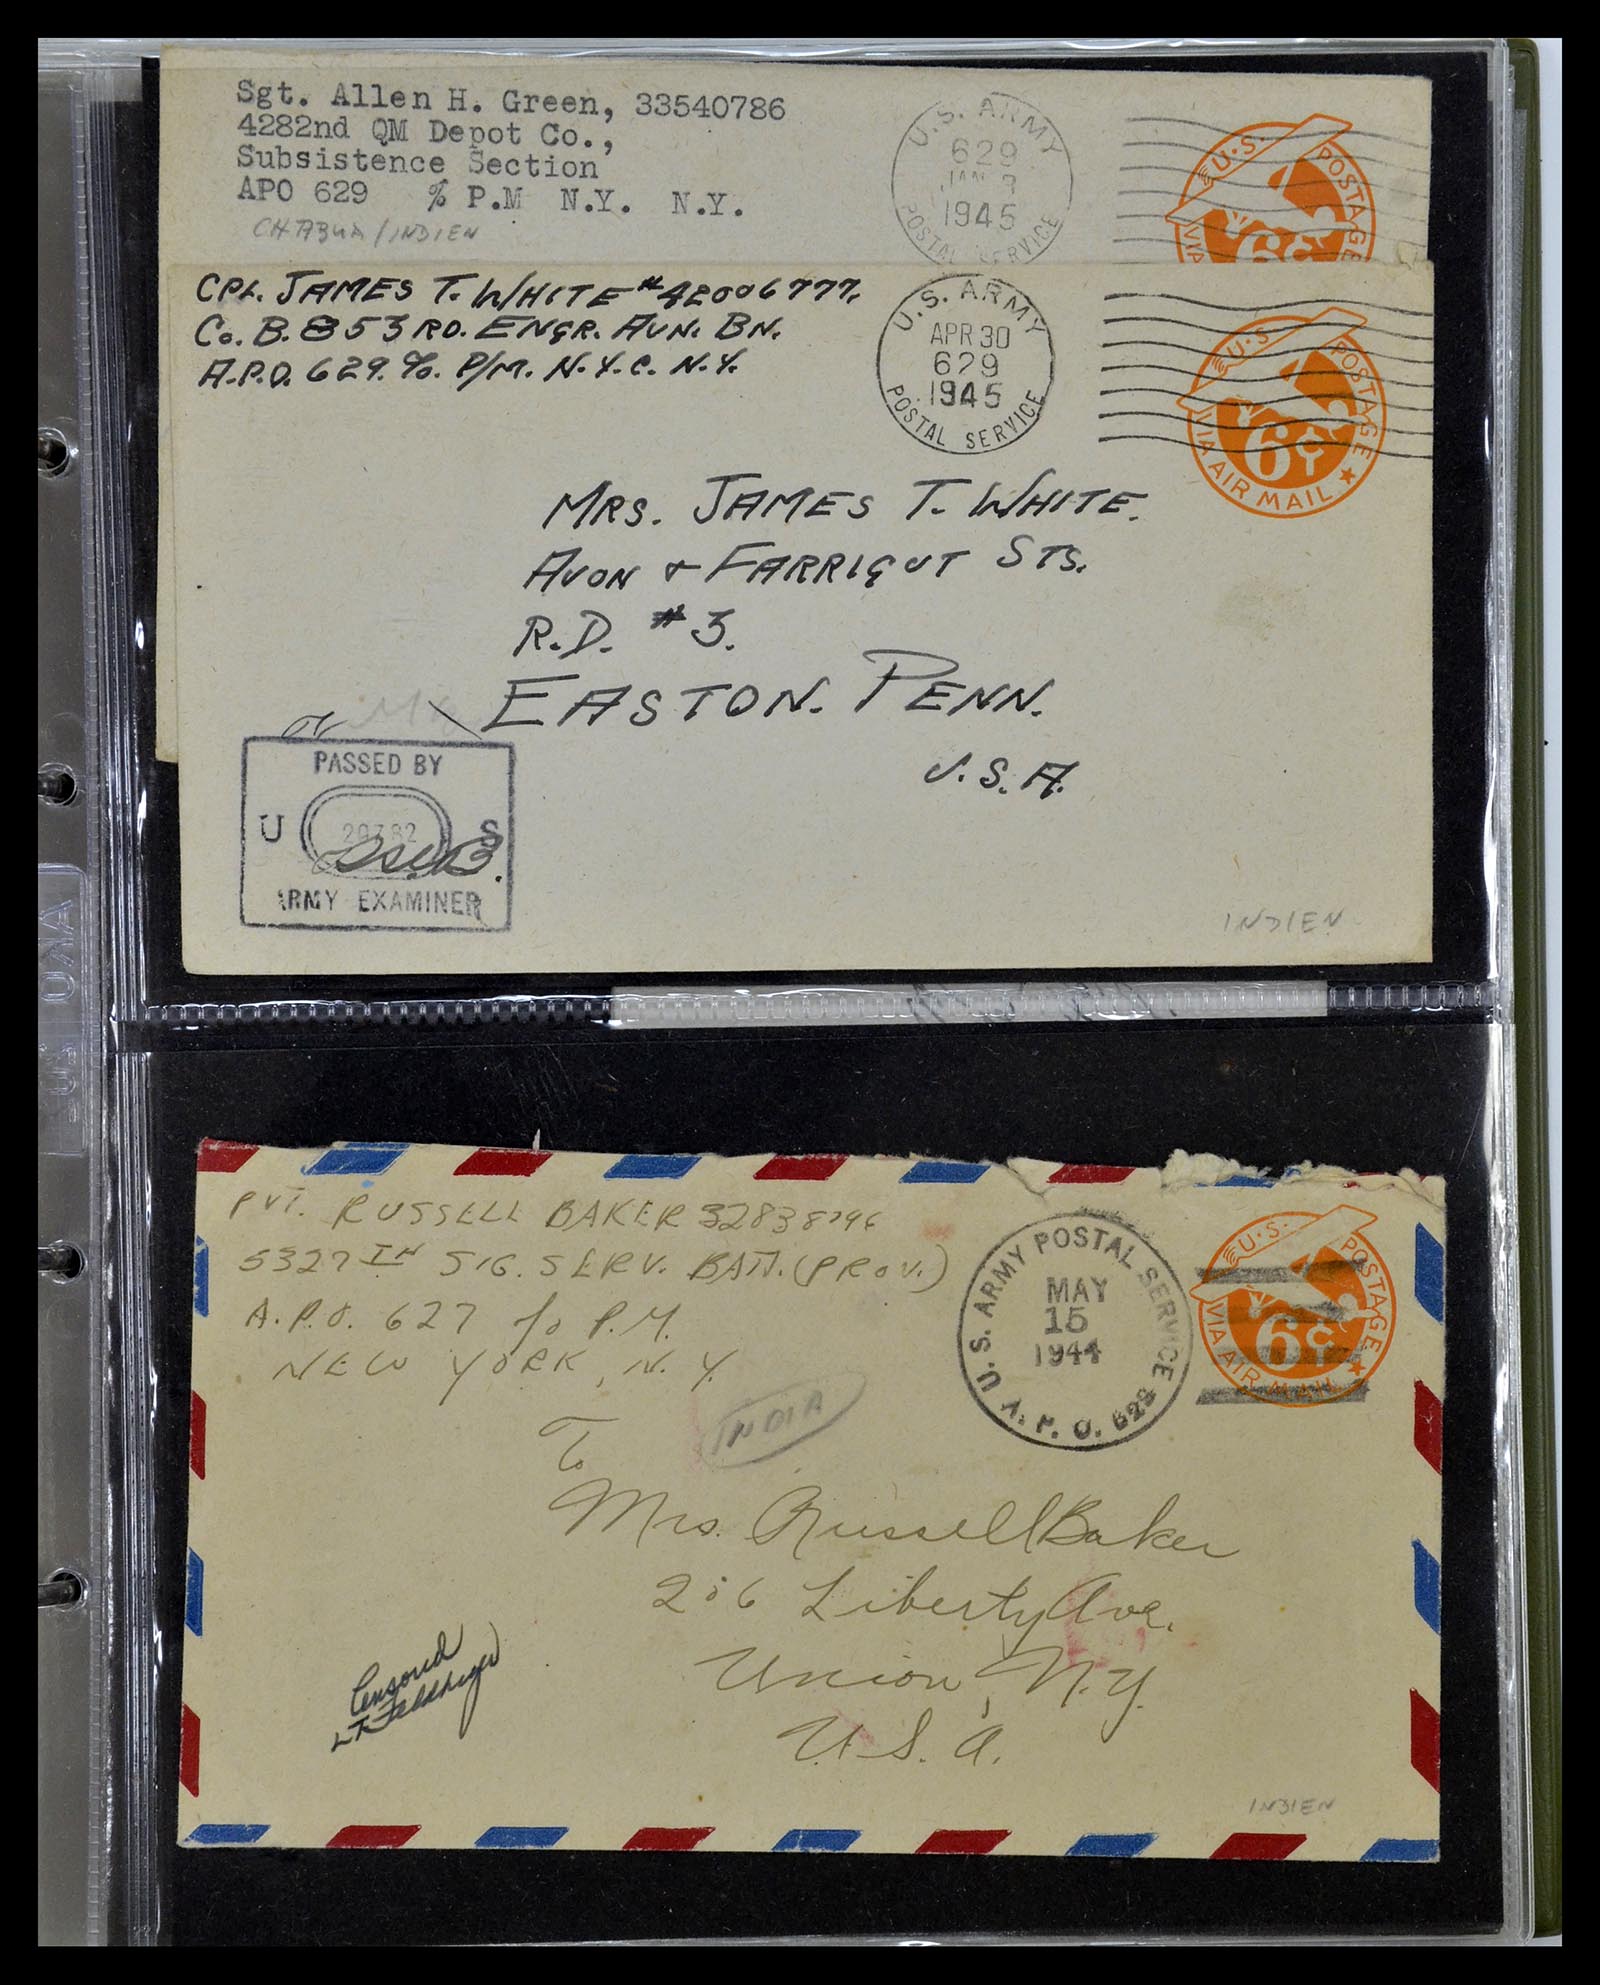 Sgt. Allen H. Green, 33540786
4282nd QM Depot Co.,
Subsistence Section
APO 629 % P.M N.Y. N.Y.
CHABUA/INDIEN
U.S. ARMY
629
JAN
1945
POSTAL SERVICE
U.S. POSTAGE
VIA
6¢
CPL. JAMES T. WHITE #42006777.
Co. B. 853RD. ENGR. AVN. BN.
A.P.O. 629. %. P/M. N.Y.C. N.Y.
U.S. ARMY
APR 30
629
1945
POSTAL SERVICE
U.S. POSTAGE
6¢
VIA AIR MAIL
MRS. JAMES T. WHITE.
AVON & FARRIGUT STS.
R.D. #3.
EASTON. PENN.
U.S.A.
PASSED BY
U S
ARMY EXAMINER
INDIEN
PVT. RUSSELL BAKER 32838796
5327TH SIG. SERV. BATT. (PROV.)
A.P.O. 627 % P.M.
NEW YORK, N.Y.
INDIA
U.S. ARMY POSTAL SERVICE
MAY
15
1944
A.P.O. 629
U.S. POSTAGE
6¢
VIA AIR MAIL
To
Mrs. Russell Baker
206 Liberty Ave.
Union, N.Y.
U.S.A.
Censored
LT.
INDIEN